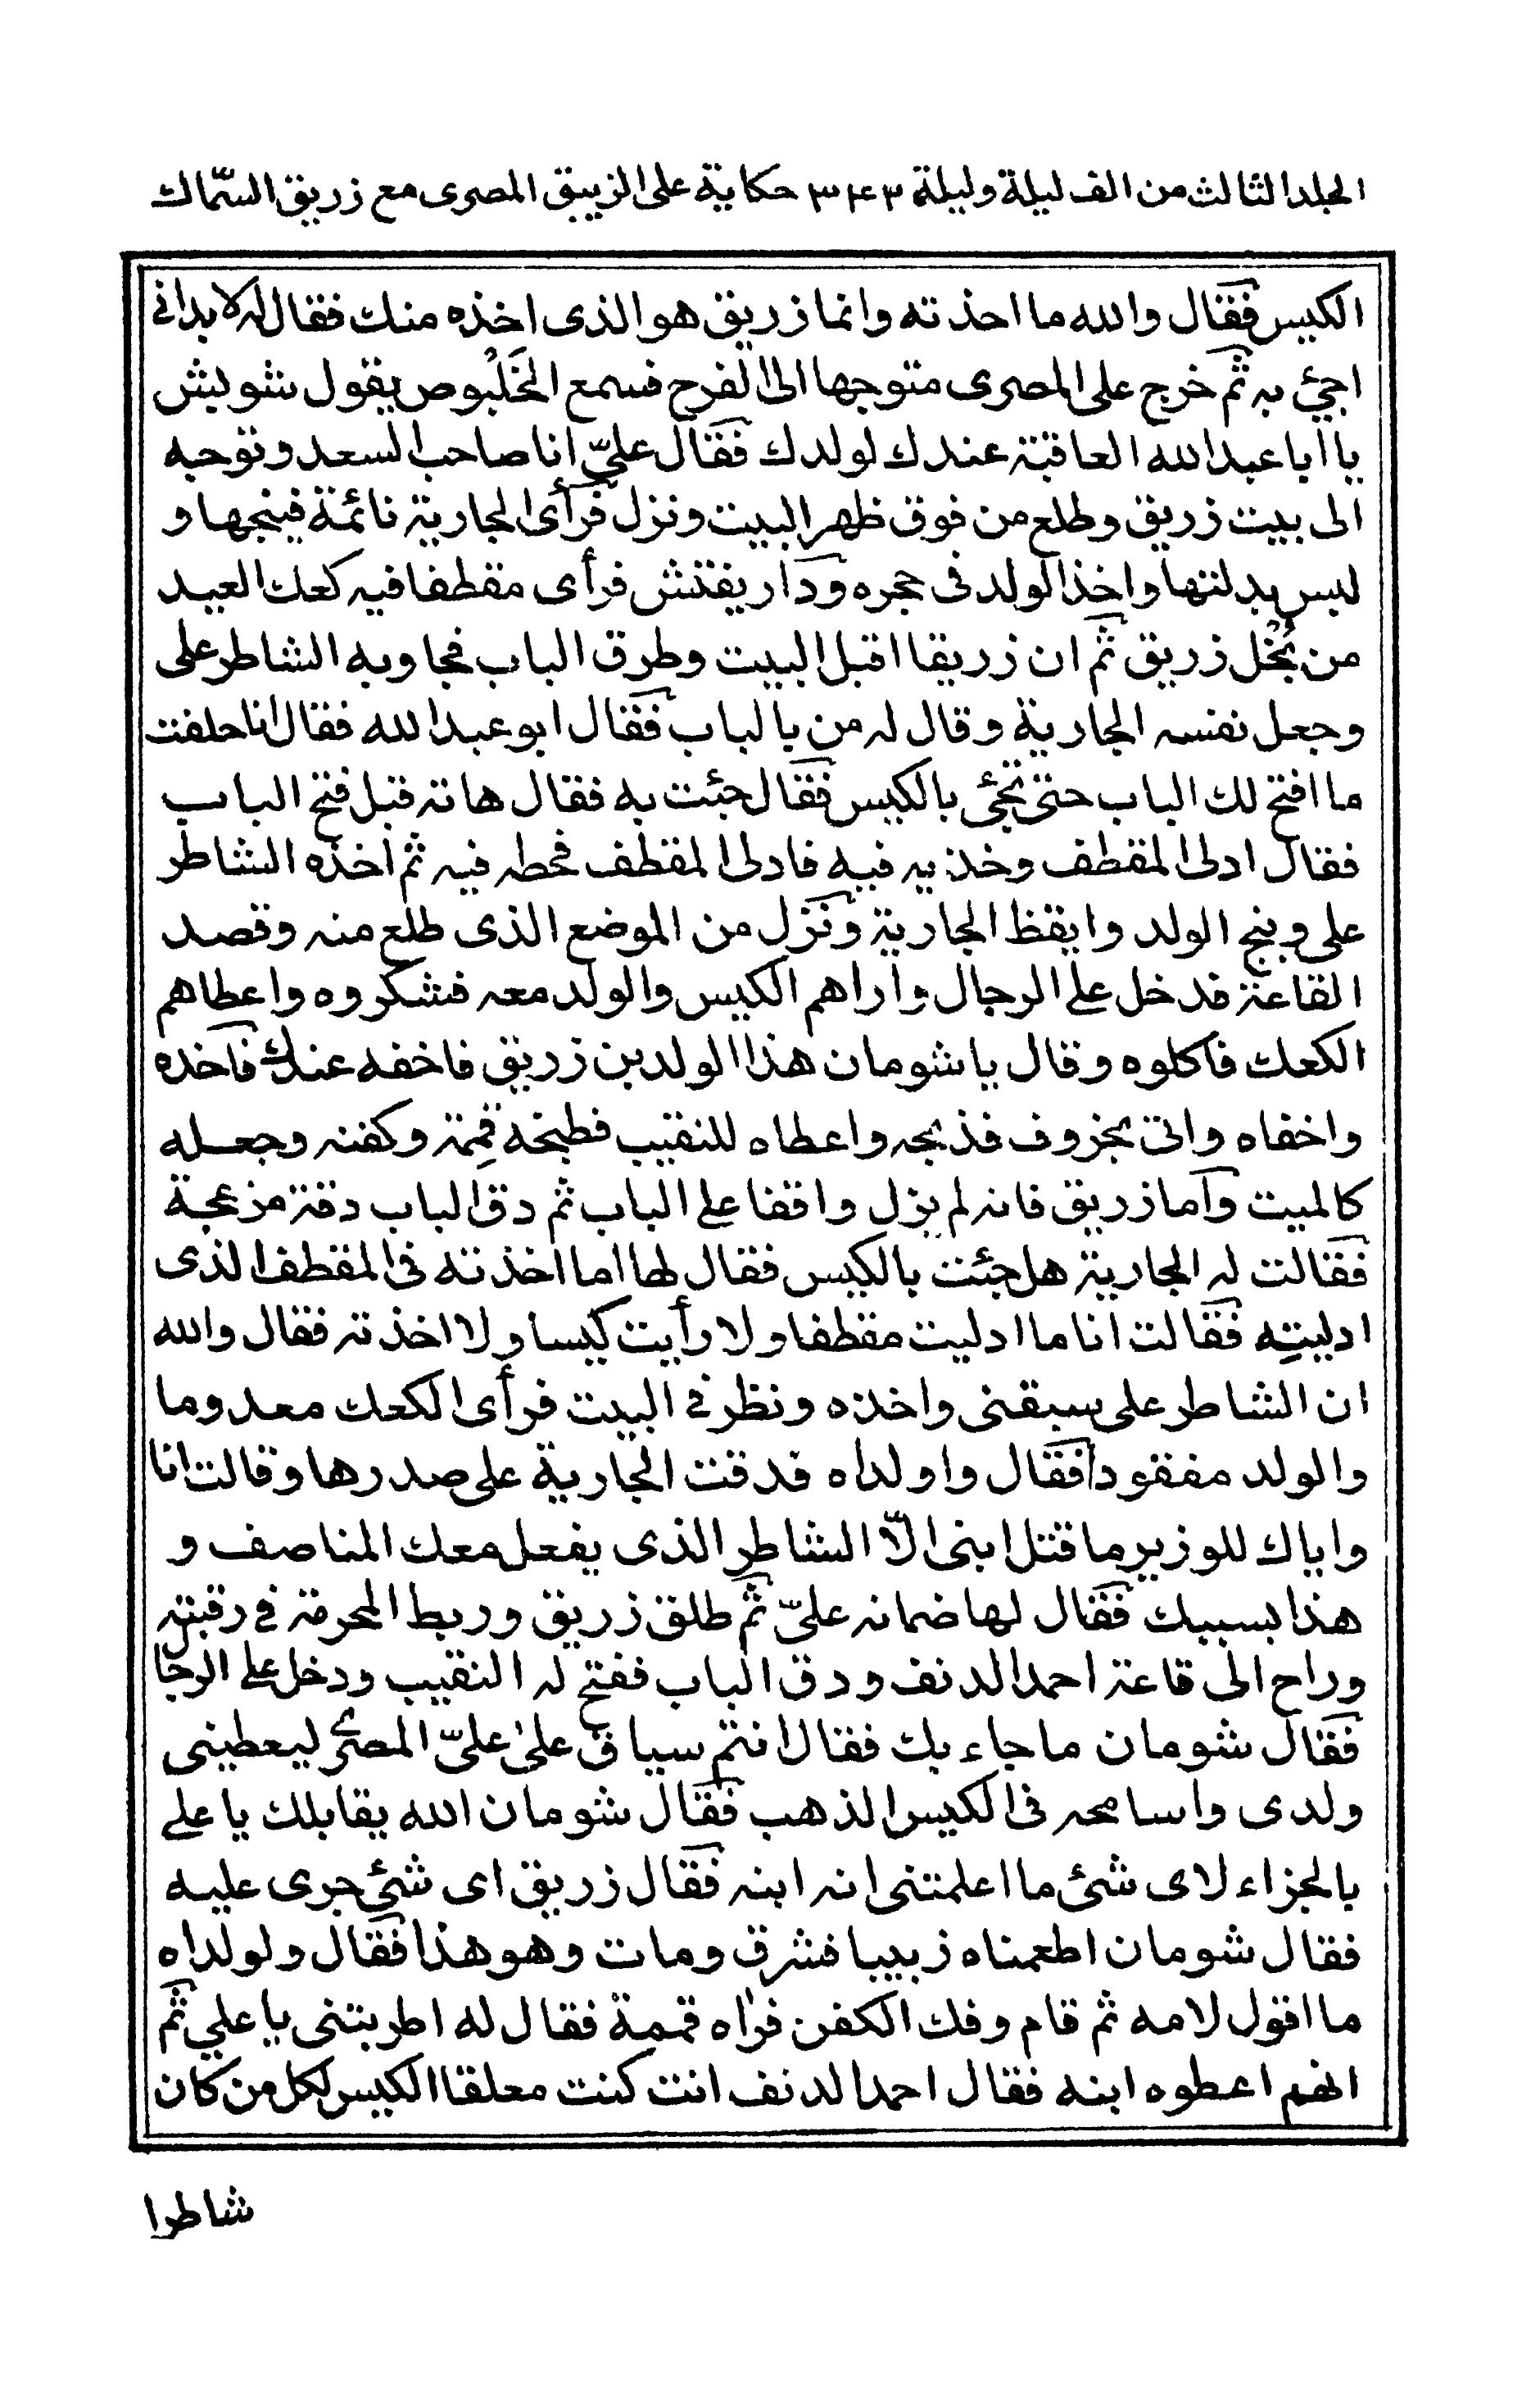 المجلد الثالث من الف ليلة وليلة ٣٤٣ حكاية على الزيبق المصرى مع زريق السمّاك
الكيس فقال والله ما اخذته وانما زريق هو الذى اخذه منك فقال له لا بد انى
اجئ به ثم خرج على المصرى متوجها الى الفرح فسمع الخَلْبُوص يقول شوبش
يا ابا عبد الله العاقبة عندك لولدك فقال علىّ انا صاحب السعد وتوجه
الى بيت زريق وطلع من فوق ظهر البيت ونزل فرأى الجارية نائمة فبنجها و
لبس بدلتها واخذ الولد فى حجره ودار يفتش فرأى مقطفا فيه كعك العيد
من بُخْل زريق ثم ان زريقا اقبل البيت وطرق الباب فجاوبه الشاطر على
وجعل نفسه الجارية وقال له من بالباب فقال ابو عبد الله فقال انا حلفت
ما افتح لك الباب حتى تجئ بالكيس فقال جئت به فقال هاته قبل فتح الباب
فقال ادلى المقطف وخذيه فيه فادلى المقطف فحطه فيه ثم اخذه الشاطر
على وبنج الولد وايقظ الجارية ونزل من الموضع الذى طلع منه وقصد
القاعة فدخل على الرجال واراهم الكيس والولد معه فشكروه واعطاهم
الكعك فاكلوه وقال يا شومان هذا الولد بن زريق فاخفه عندك فاخذه
واخفاه واتى بخروف فذبحه واعطاه للنقيب فطبخه قِمّة وكفنه وجعله
كالميت واما زريق فانه لم يزل واقفا على الباب ثم دق الباب دقة مزعجة
فقالت له الجارية هل جئت بالكيس فقال لها اما اخذته فى المقطف الذى
ادليتِه فقالت انا ما ادليت مقطفا ولا رأيت كيسا ولا اخذته فقال والله
ان الشاطر على سبقنى واخذه ونظر فى البيت فرأى الكعك معدوما
والولد مفقودا فقال واولداه فدقت الجارية على صدرها وقالت انا
واياك للوزير ما قتل ابنى الّا الشاطر الذى يفعل معك المناصف و
هذا بسببك فقال لها ضمانه علىّ ثم طلق زريق وربط المحرمة فى رقبته
وراح الى قاعة احمد الدنف ودق الباب ففتح له النقيب ودخل على الرجال
فقال شومان ما جاء بك فقال انتم سياق على علىّ المصرى ليعطينى
ولدى واسامحه فى الكيس الذهب فقال شومان الله يقابلك يا على
بالجزاء لاى شئ ما اعلمتنى انه ابنه فقال زريق اى شئ جرى عليه
فقال شومان اطعمناه زبيبا فشرق ومات وهو هذا فقال ولولداه
ما اقول لامه ثم قام وفك الكفن فراٰه قممة فقال له اطربتنى يا على ثم
انهم اعطوه ابنه فقال احمد الدنف انت كنت معلقا الكيس لكل من كان
شاطرا